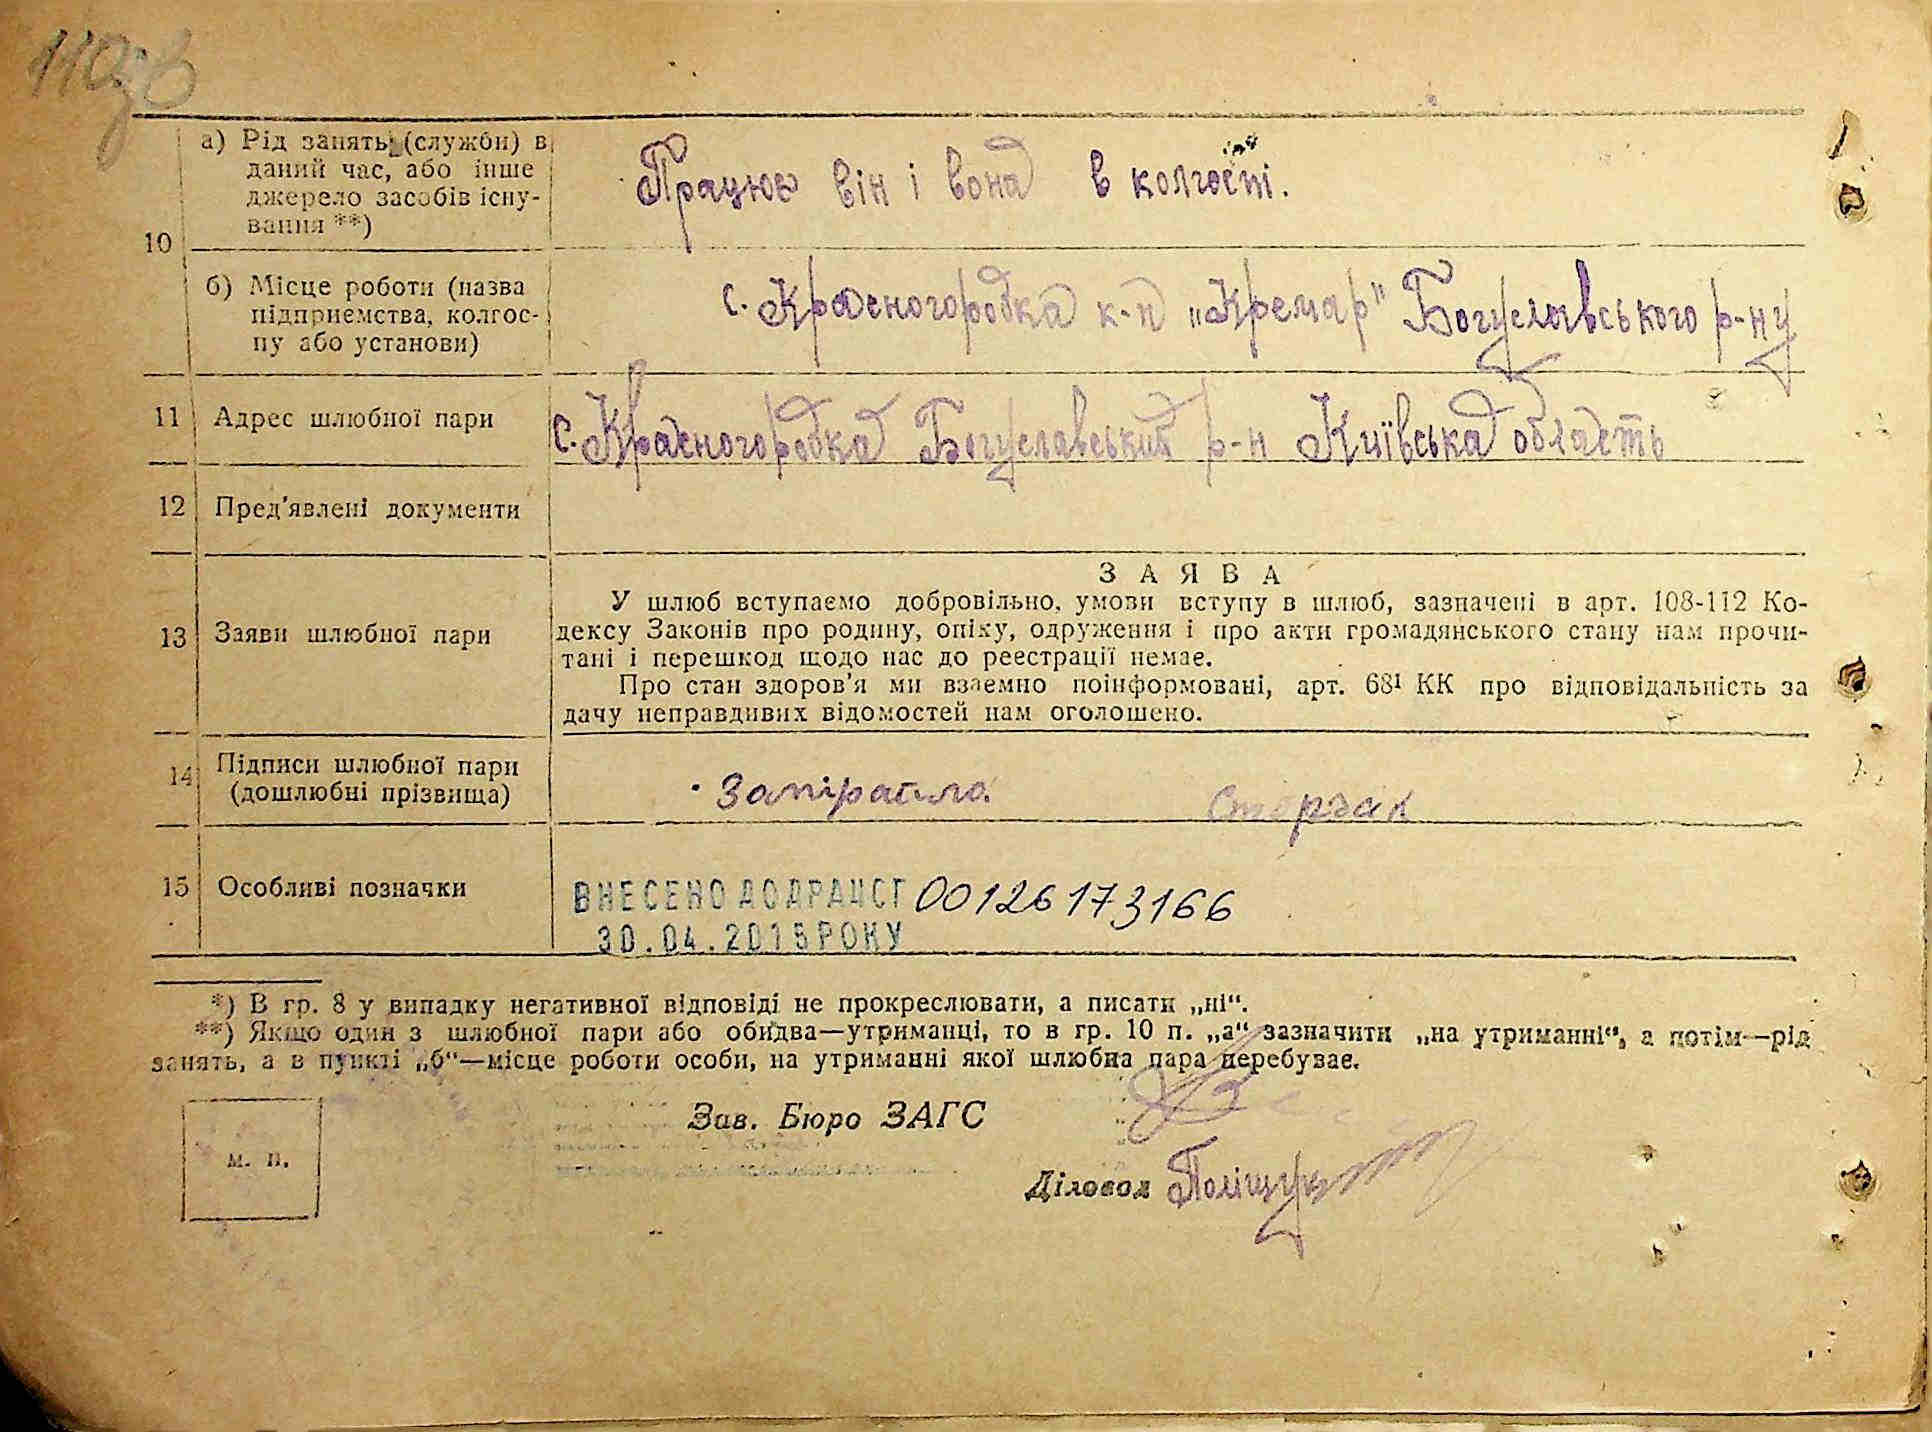 110зв
а) Рід занять (служби) в
даний час, або інше
джерело засобів існу-
вання **)
Працює він і вона в колгоспі.
10
б) Місце роботи (назва
підприємства, колгос-
пу або установи)
с. Красногородка к-п „Кремар" Богуславського р-ну
11 Адрес шлюбної пари
с. Красногородка Богуславський р-н Київська область
12 Пред'явлені документи
13 Заяви шлюбної пари
ЗАЯВА
У шлюб вступаємо добровільно, умови вступу в шлюб, зазначені в арт. 108-112 Ко-
дексу Законів про родину, опіку, одруження і про акти громадянського стану нам прочи-
тані і перешкод щодо нас до реєстрації немає.
Про стан здоров'я ми взаємно поінформовані, арт. 68¹ КК про відповідальність за
дачу неправдивих відомостей нам оголошено.
14 Підписи шлюбної пари
(дошлюбні прізвища)
Запірайло Сторчак
15 Особливі позначки
ВНЕСЕНО ДО ДРАЦСГ 00126173166
30.04.2015 РОКУ
*) В гр. 8 у випадку негативної відповіді не прокреслювати, а писати „ні".
**) Якщо один з шлюбної пари або обидва—утриманці, то в гр. 10 п. „а" зазначити „на утриманні", а потім—рід
занять, а в пункті „б"—місце роботи особи, на утриманні якої шлюбна пара перебуває.
Зав. Бюро ЗАГС
м. п.
Діловод Поліщук